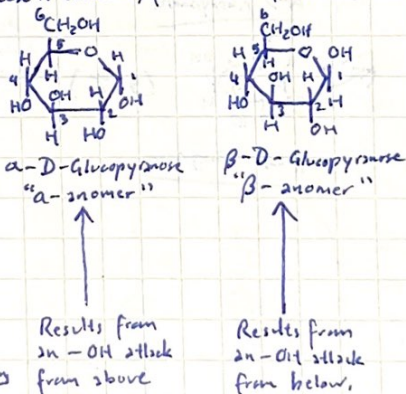 6
CH₂OH
H 5 O H
4 H 1
HO OH H OH
3 2
H HO
α-D-Glucopyranose
"α-anomer"
Results from
an -OH attack
from above
6
CH₂OH
H 5 O OH
4 H 1
HO OH H H
3 2
H OH
β-D-Glucopyranose
"β-anomer"
Results from
an -OH attack
from below.